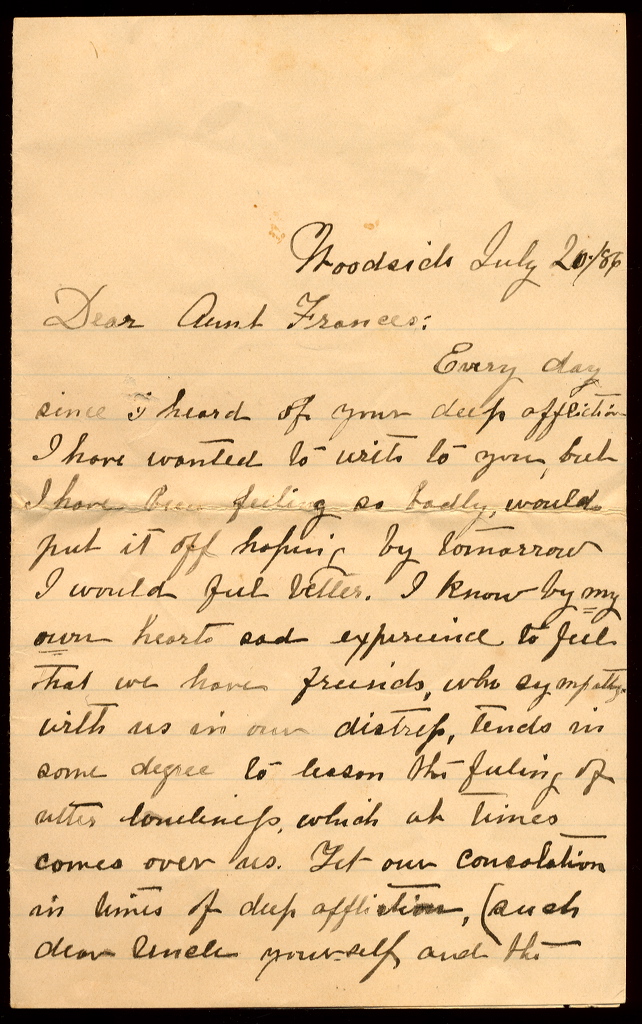 Woodside July 20/86
Dear Aunt Frances:
Every day
since I heard of your deep affliction
I have wanted to write to you, but
I have been feeling so badly, would
put it off hoping by tomorrow
I would feel better. I know by my
own hearts sad experience to feel
that we have freinds, who sympathize
with us in our distress, tends in
some degree to lesson the feeling of
utter loneliness, which at times
comes over us. Yet our consolation
in times of deep affliction, (such
dear Uncle yourself and the